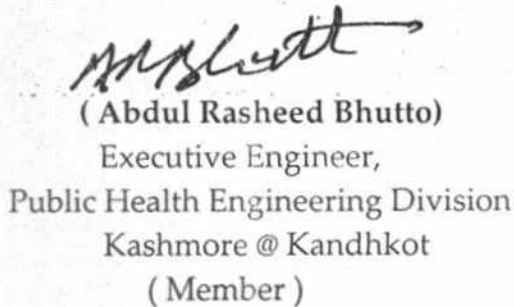 ( Abdul Rasheed Bhutto)
Executive Engineer,
Public Health Engineering Division
Kashmore @ Kandhkot
( Member )